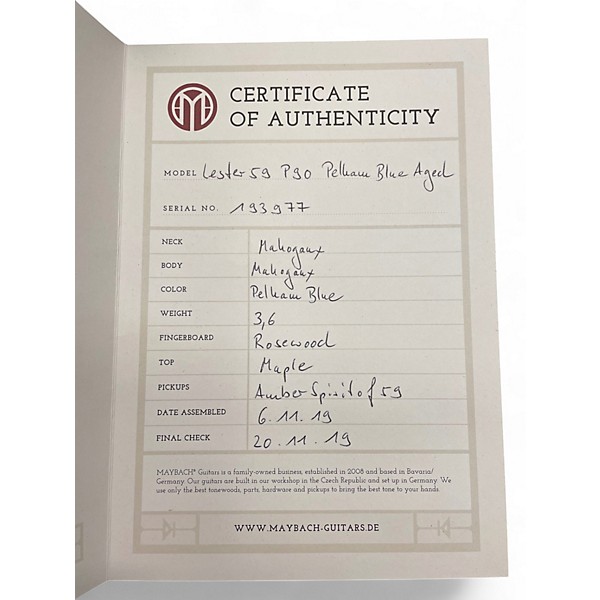 CERTIFICATE
OF AUTHENTICITY
MODEL Lester 59 P90 Pelham Blue Aged
SERIAL NO. 193977
NECK Mahogany
BODY Mahogany
COLOR Pelham Blue
WEIGHT 3,6
FINGERBOARD Rosewood
TOP Maple
PICKUPS Amber Spirit of 59
DATE ASSEMBLED 6.11.19
FINAL CHECK 20.11.19
MAYBACH® Guitars is a family-owned business, established in 2008 and based in Bavaria/
Germany. Our guitars are built in our workshop in the Czech Republic and set up in Germany. We
use only the best tonewoods, parts, hardware and pickups to bring the best tone to your hands.
WWW.MAYBACH-GUITARS.DE